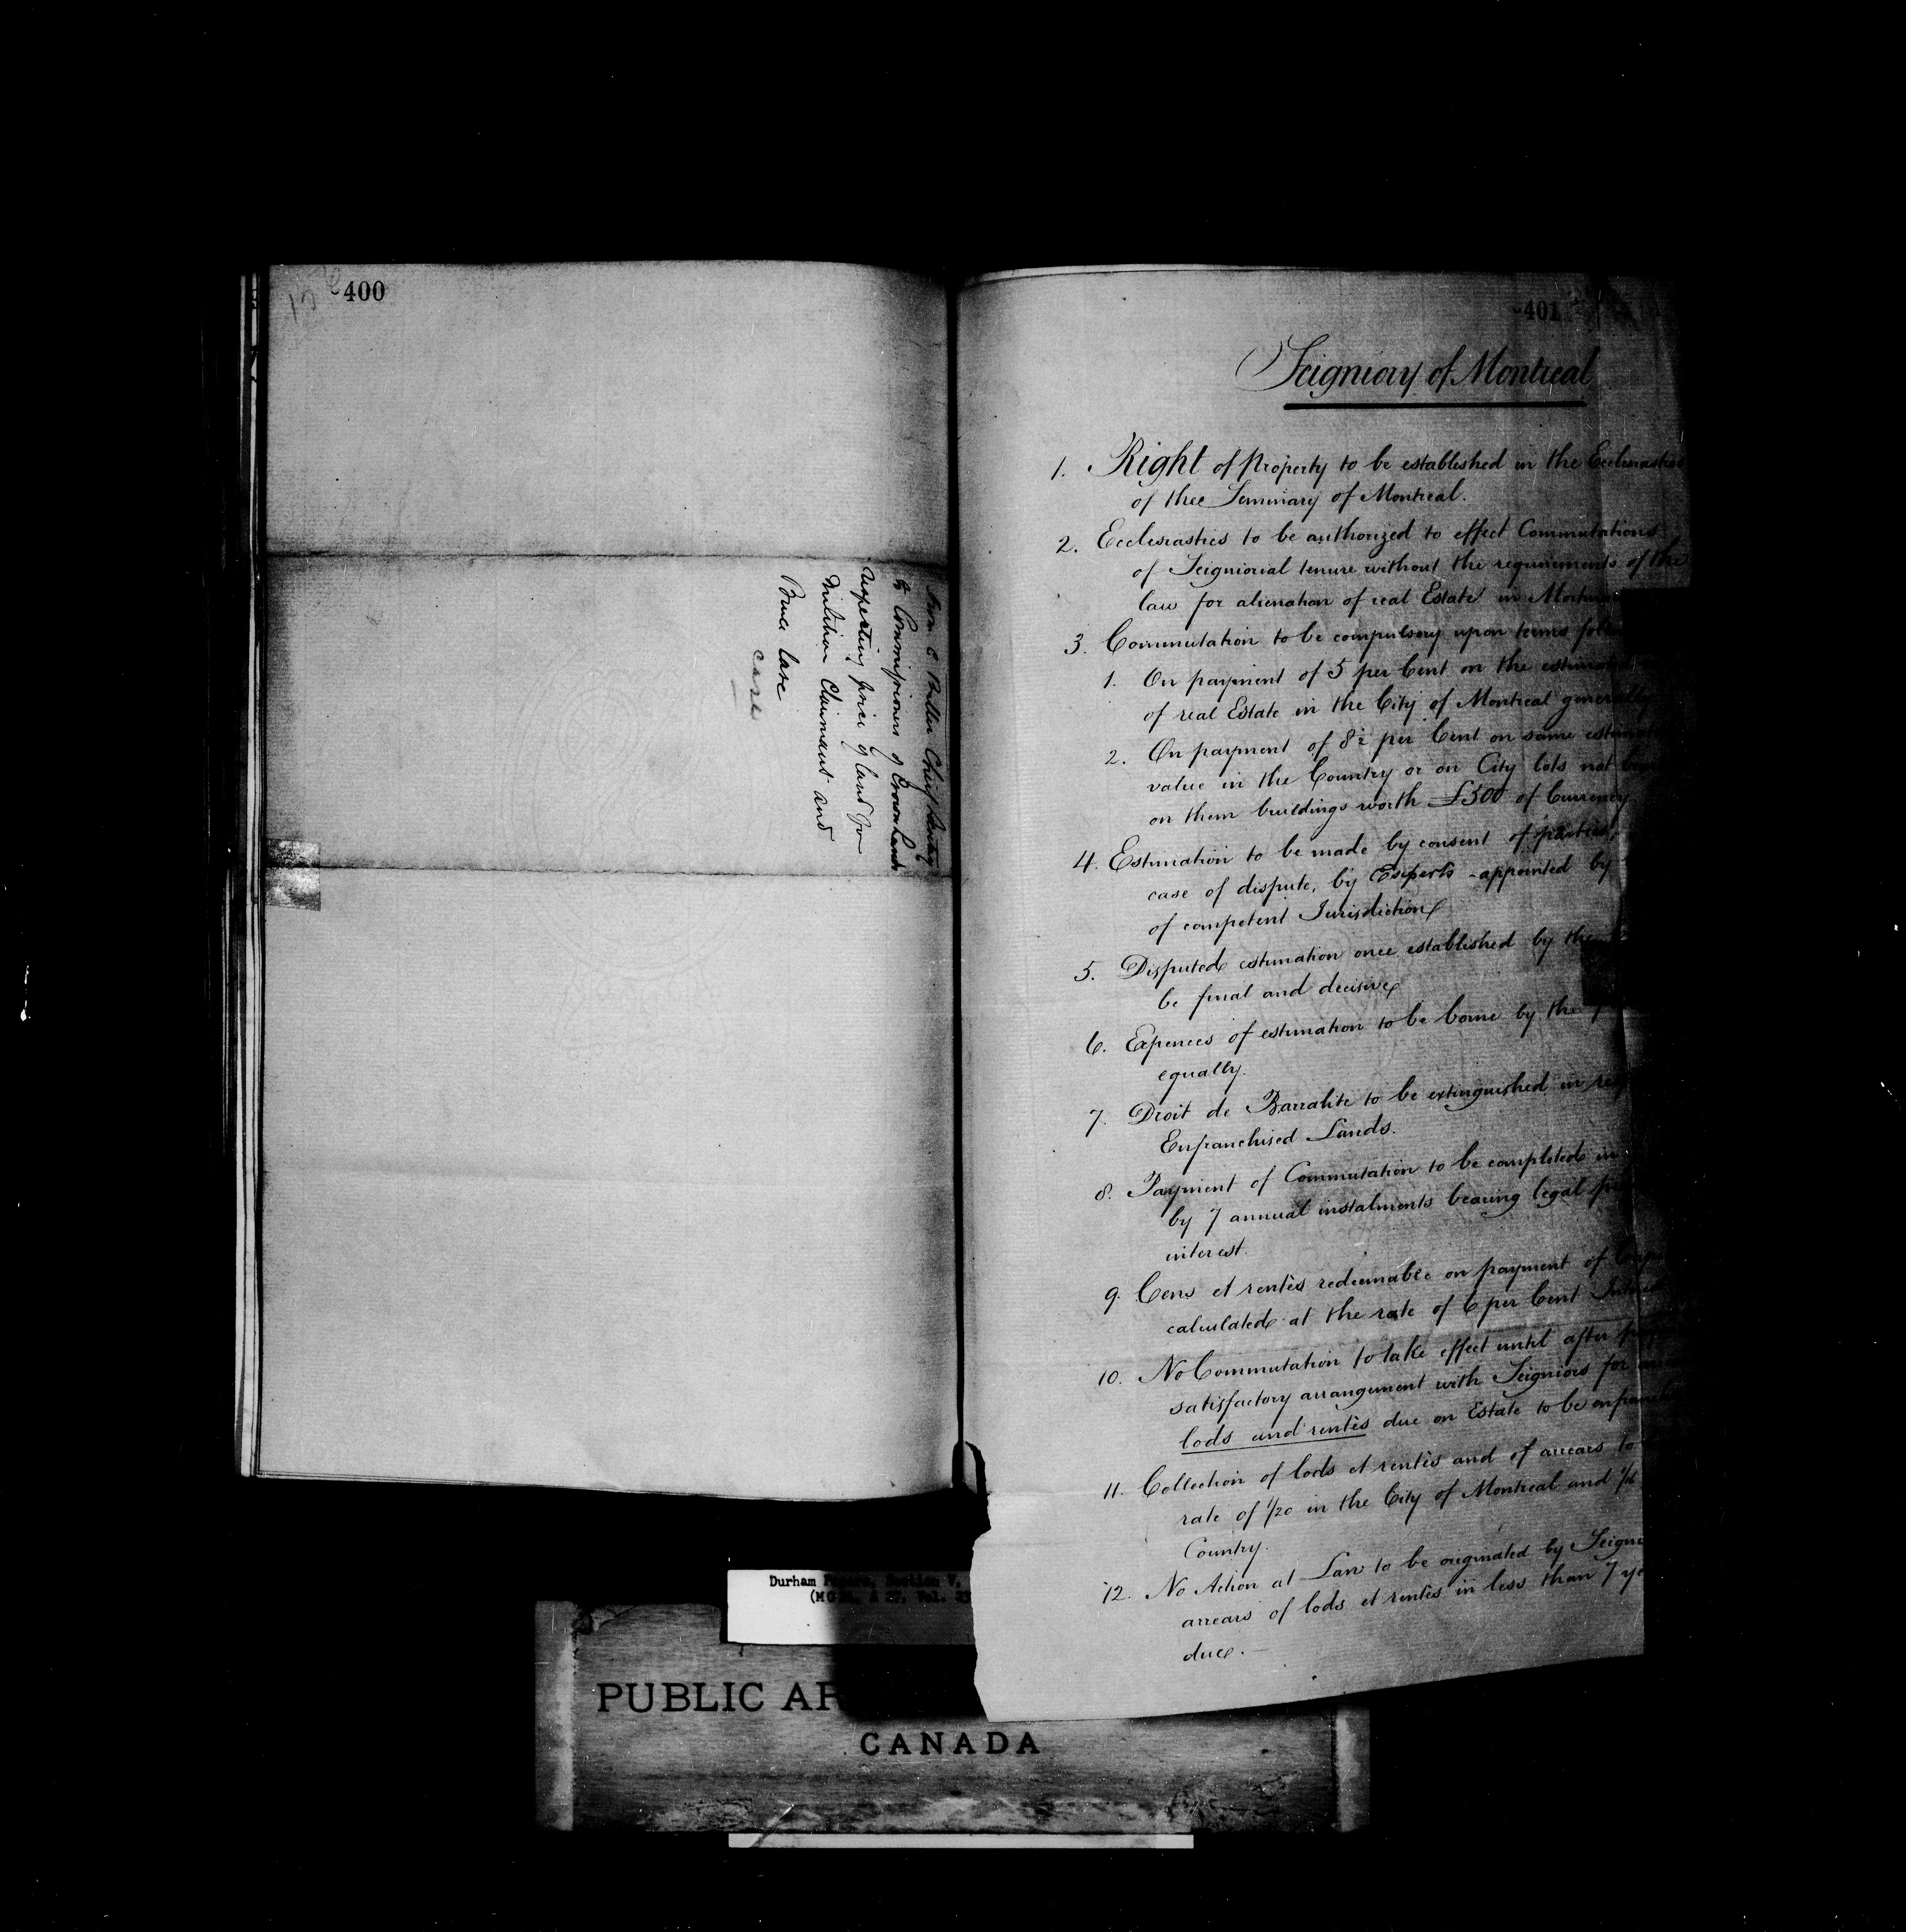 400
From C Buller Chief Secretary
to Commissioners of Crown Lands
respecting price of land for
Militia Claimants and
Bruce Case
Case
401
Seigniory of Montreal
1. Right of Property to be established in the Ecclesiastics
of thee Seminary of Montreal.
2. Ecclesiastics to be authorized to effect Commutations
of Seigniorial tenure without the requirements of the
law for alienation of real Estate in
3. Commutation to be compulsory upon terms
1. On payment of 5 per Cent on the
of real Estate in the City of Montreal generally
2. On payment of 8½ per Cent on same
value in the Country or on City lots not
on them buildings worth £500 of Currency
4. Estimation to be made by consent of parties,
case of dispute, by Experts appointed by
of competent Jurisdiction
5. Disputed estimation once established by
be final and decisive
6. Expences of estimation to be borne by the
equally.
7. Droit de Barralite to be extinguished in
Enfranchised Lands.
8. Payment of Commutation to be completed in
by 7 annual instalments bearing legal
interest.
9. Cens et rentès redeemable on payment of
calculated at the rate of 6 per Cent
10. No Commutation to take effect until after
satisfactory arrangement with Seigniors for
lods and rentès due on Estate to be
11. Collection of lods et rentès and of arrears to
rate of 1/20 in the City of Montreal and
Country.
12. No Action at Law to be originated by
arrears of lods et rentès in less than 7
due.—
Durham
PUBLIC AR
CANADA